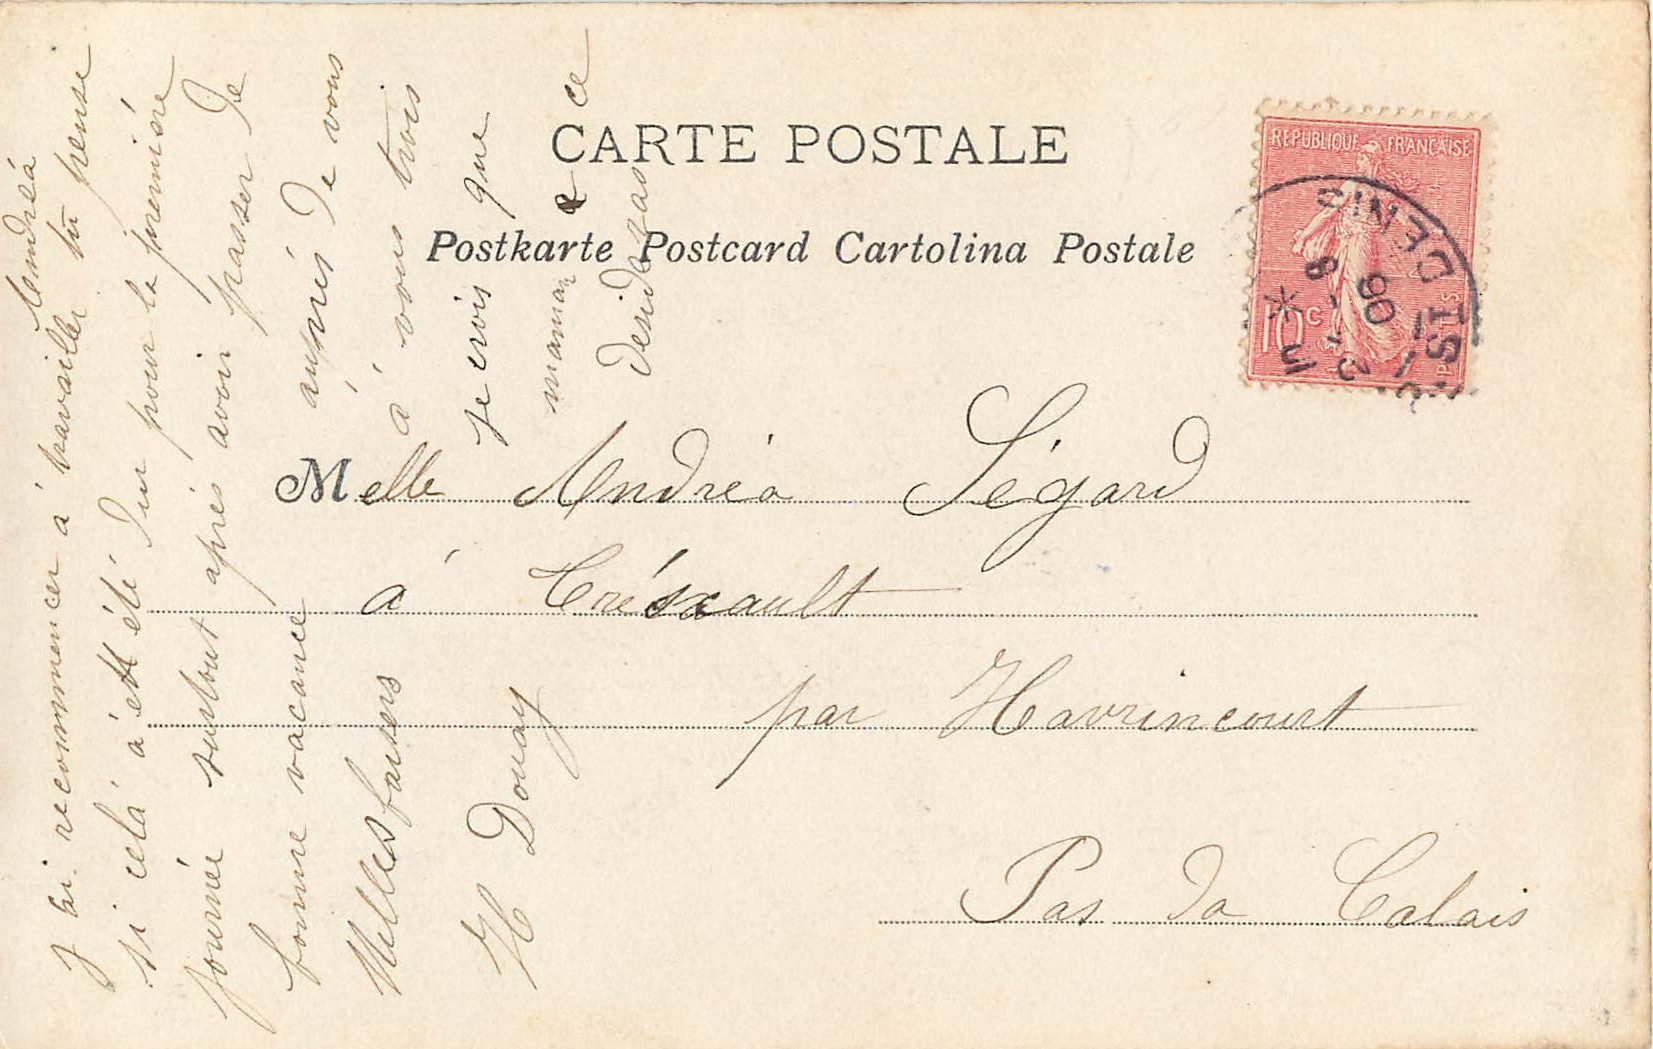 CARTE POSTALE
Postkarte Postcard Cartolina Postale
REPUBLIQUE FRANÇAISE
10c
POSTES
ST DENIS
*
8 - 2
06
Melle Andréa Ségard
à Trésxault
par Havrincourt
Pas da Calais
J ai recommencer à travailler tu pense
si celá á été Dur pour la premiére
journée surtout aprés avoir passer De
bonne vacance auprés De vous
Milles baisers á vous trois
H Douay je crois que
maman ce